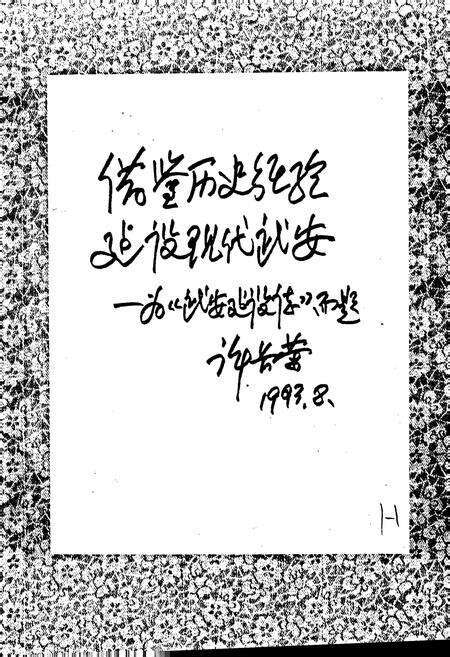 借鉴历史经验
建设现代武安
—为《武安建设志》而题
许长荣
1993.8.
1-1